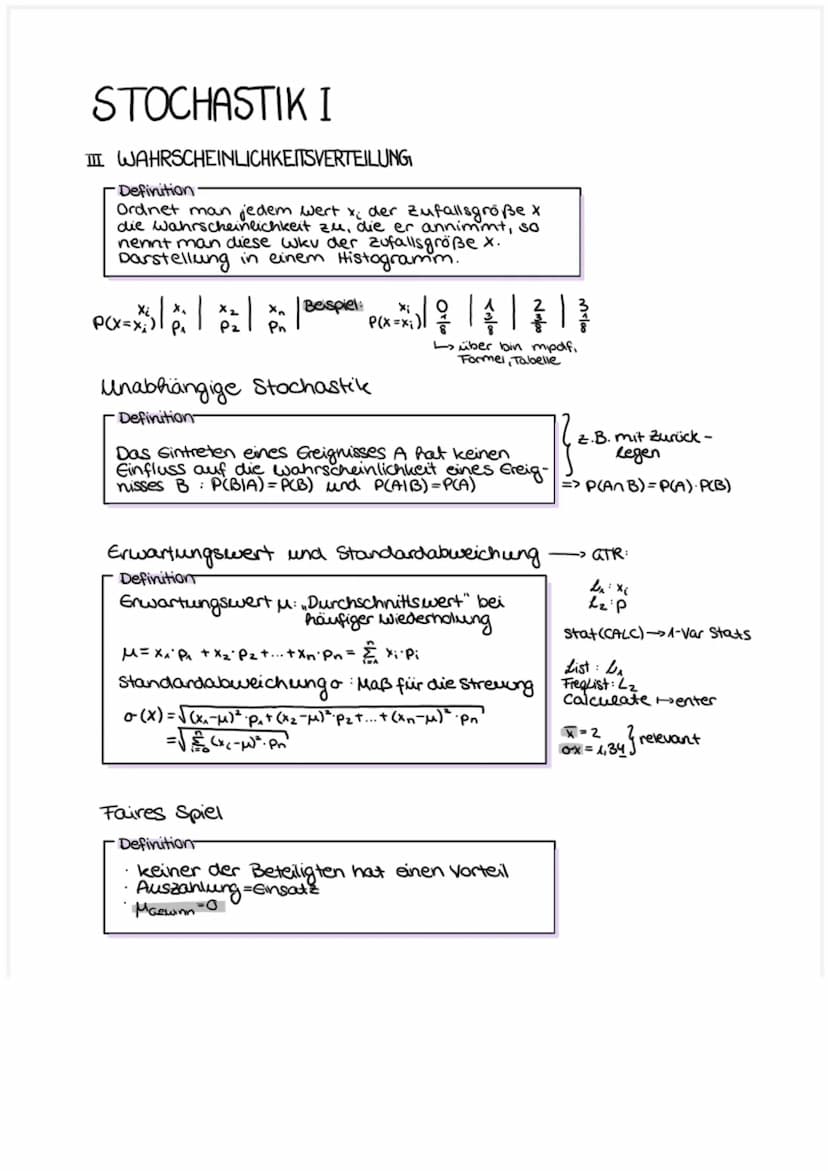 STOCHASTIK I
III WAHRSCHEINLICHKEITSVERTEILUNG
Definition
Ordnet man jedem Wert xᵢ der Zufallsgröße X
die Wahrscheinlichkeit zu, die er annimmt, so
nennt man diese WKV der Zufallsgröße X.
Darstellung in einem Histogramm.
xᵢ | x₁ | x₂ | xₙ | Beispiel: xᵢ | 0 | 1 | 2 | 3
P(X=xᵢ) | p₁ | p₂ | pₙ | P(X=xᵢ) | 1/8 | 3/8 | 3/8 | 1/8
↳ über bin mpdf,
Formel, Tabelle
Unabhängige Stochastik
Definition
Das Eintreten eines Ereignisses A hat keinen
Einfluss auf die Wahrscheinlichkeit eines Ereig-
nisses B : P(B|A) = P(B) und P(A|B) = P(A)
z.B. mit Zurück-
legen
=> P(A∩B) = P(A)·P(B)
Erwartungswert und Standardabweichung → GTR:
Definition
Erwartungswert μ: „Durchschnittswert" bei
häufiger Wiederholung
μ = x₁·p₁ + x₂·p₂ + ... + xₙ·pₙ = Σⁿᵢ₌₁ xᵢ·pᵢ
Standardabweichung σ : Maß für die Streuung
σ(X) = √((x₁-μ)²·p₁ + (x₂-μ)²·p₂ + ... + (xₙ-μ)²·pₙ)
= √(Σⁿᵢ₌₀ (xᵢ-μ)²·pₙ)
L₁: xᵢ
L₂: p
Stat(CALC) → 1-Var Stats
List: L₁
FreqList: L₂
Calculate ↦ enter
x̄ = 2
σx = 1,34 } relevant
Faires Spiel
Definition
· keiner der Beteiligten hat einen Vorteil
· Auszahlung = Einsatz
· μGewinn = 0